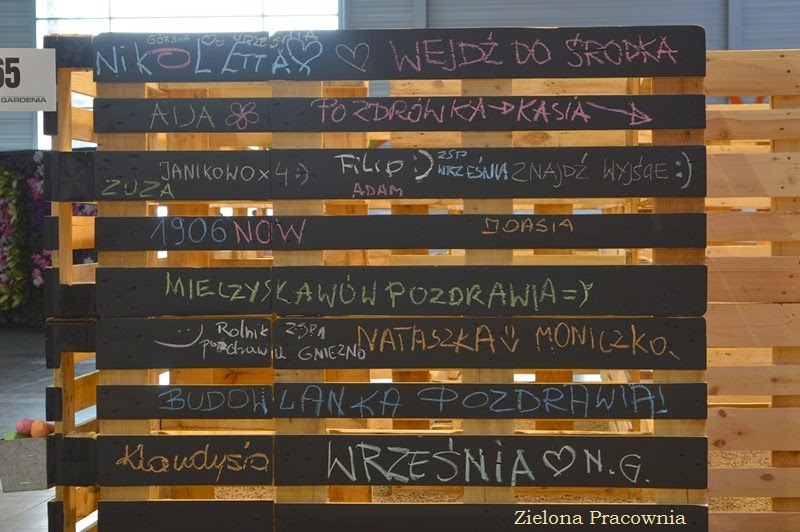 65
GARDENIA
GÓRSKA WRZEŚNIA
NIKOLETTA WEJDŹ DO ŚRODKA
ALJA POZDRÓWKA KASIA
JANIKOWO x 4 :) Filip :) ZSP WRZEŚNIA ZNAJDŹ WYJŚCIE :)
ZUZA ADAM
1906 NOW JOASIA
MIECZYSKAWÓW POZDRAWIA =)
Rolnik ZSP1 NATASZKA MONICZKO.
pozdrawia GNIEZNO
BUDOWLANKA POZDRAWIA!
Klaudysia WRZEŚNIA ♡ N.G.
Zielona Pracownia